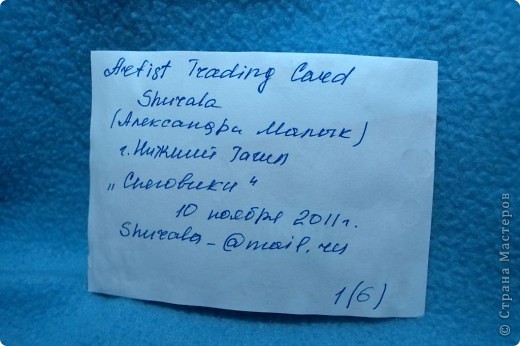 Artist Trading Card
Shurala
(Александра Малык)
г. Нижний Тагил
„Снеговики“
10 ноября 2011г.
Shurala_@mail.ru
1(6)
© Страна Мастеров